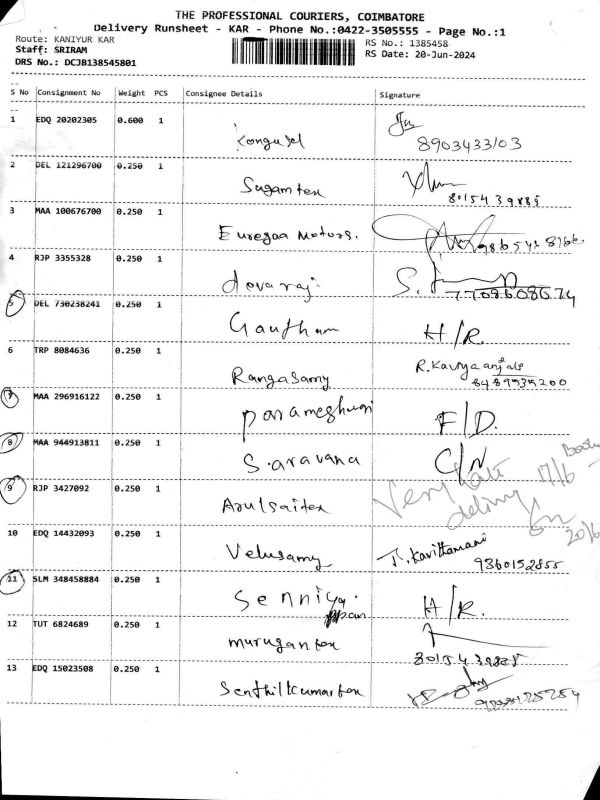 THE PROFESSIONAL COURIERS, COIMBATORE
Delivery Runsheet - KAR - Phone No.:0422-3505555 - Page No.:1
Route: KANIYUR KAR
RS No.: 1385458
Staff: SRIRAM
RS Date: 20-Jun-2024
DRS No.: DCJB138545801
S No Consignment No Weight PCS Consignee Details Signature
1 EDQ 20202305 0.600 1
8903433103
2 DEL 121296700 0.250 1 Sugamtex
8015439885
3 MAA 100676700 0.250 1 Euregaa Motors.
4 RJP 3355328 0.250 1 dovaraj. S.
7708608674
5 DEL 730238241 0.250 1 Gautham H/R.
6 TRP 8084636 0.250 1 Rangasamy R.Kavya anjali
8489535200
7 MAA 296916122 0.250 1 parameshwari F/D.
8 MAA 944913811 0.250 1 Saravana C/N
9 RJP 3427092 0.250 1 Arulsaitex Very Late 17/6
delivery on 20/6
10 EDQ 14432093 0.250 1 Velusamy J. Kavithamani
9360152855
11 SLM 348458884 0.250 1 Senniya H/R.
ppan
12 TUT 6824689 0.250 1 murugan tex
8015439885
13 EDQ 15023508 0.250 1 Senthilkumar tex